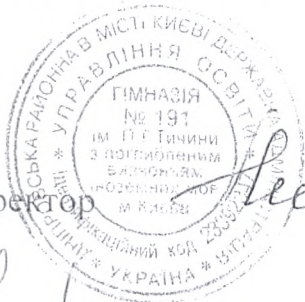 ДНІПРОВСЬКА РАЙОННА В МІСТІ КИЄВІ ДЕРЖАВНА
УПРАВЛІННЯ ОСВІТИ
ГІМНАЗІЯ
№ 191
ІМ. П.Г.Тичини
з поглибленим
вивченням
іноземних мов
м. Києва
код
* УКРАЇНА *
ректор